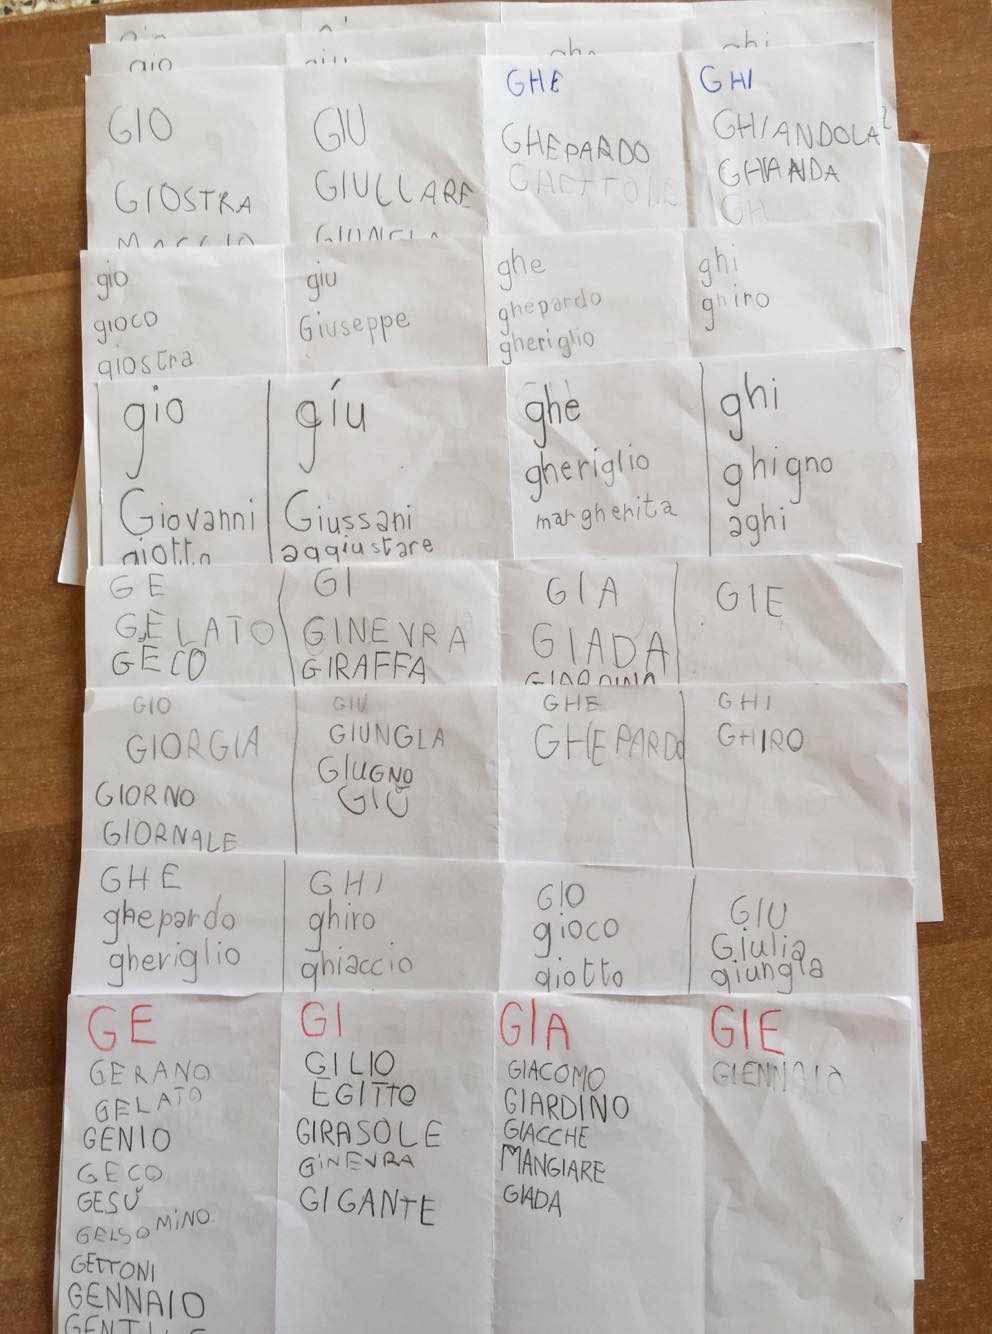 gio
GIO GIU GHE GHI
GIOSTRA GIULLARE GHEPARDO GHIANDOLA
GHIANDA
gio giu ghe ghi
gioco Giuseppe ghepardo ghiro
giostra gheriglio
gio giu ghe ghi
Giovanni Giussani gheriglio ghigno
giotto aggiustare margherita aghi
GE GI GIA GIE
GELATO GINEVRA GIADA
GECO GIRAFFA
GIO GIU GHE GHI
GIORGIA GIUNGLA GHEPARDO GHIRO
GIORNO GIUGNO
GIORNALE GIÙ
GHE GHI GIO GIU
ghepardo ghiro gioco Giulia
gheriglio ghiaccio giotto giungla
GE GI GIA GIE
GERANO GILIO GIACOMO
GELATO EGITTO GIARDINO
GENIO GIRASOLE GIACCHE
GECO GINEVRA MANGIARE
GESÙ GIGANTE GIADA
GELSOMINO
GETTONI
GENNAIO